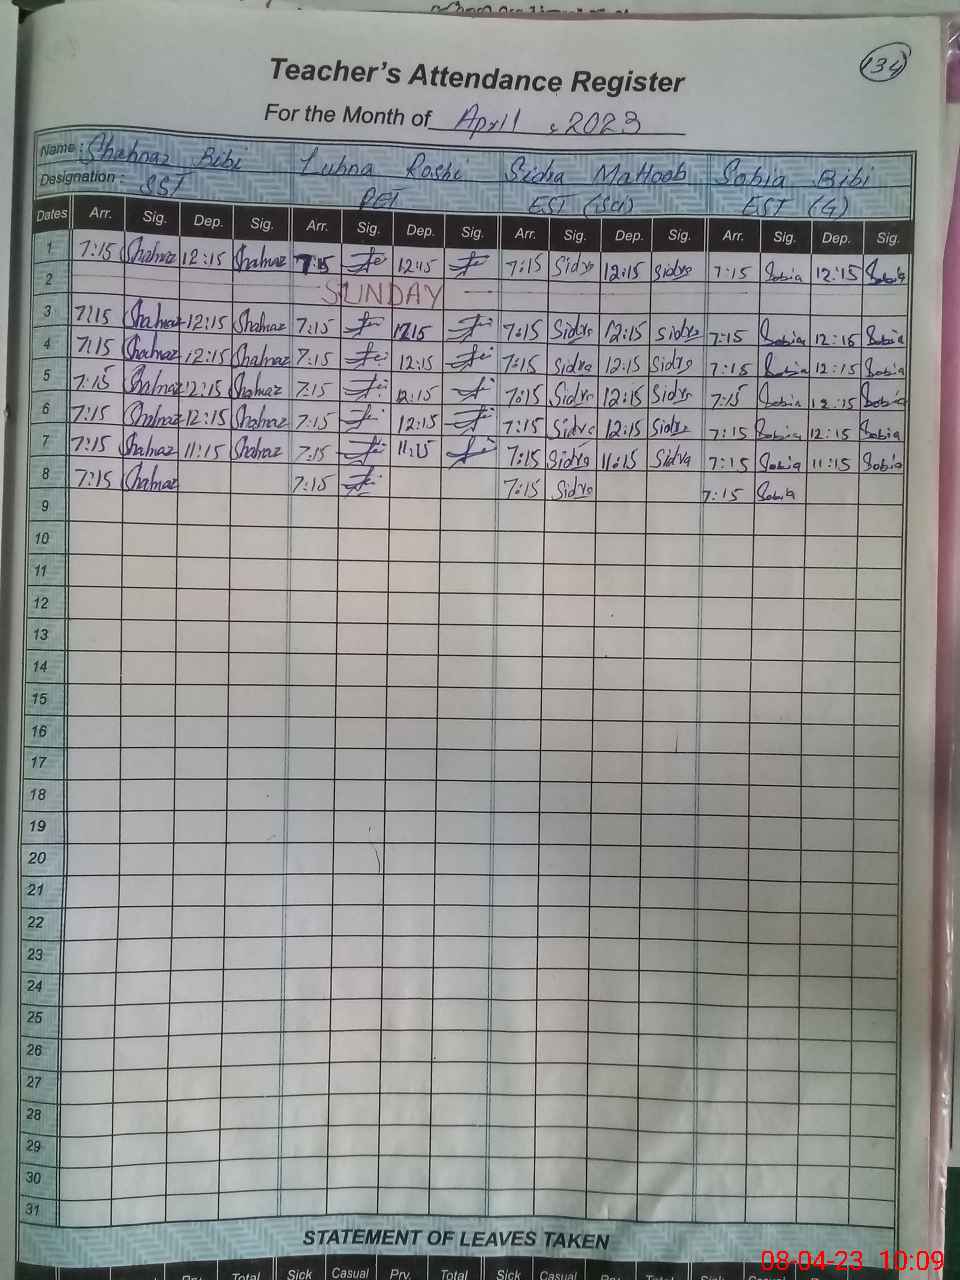 134
Teacher's Attendance Register
For the Month of April, 2023
Name: Shahnaz Bibi Lubna Roshi Sidra Bibi
Designation: SST PET EST (Sci) EST (G)
Dates Arr. Sig. Dep. Sig. Arr. Sig. Dep. Sig. Arr. Sig. Dep. Sig. Arr. Sig. Dep. Sig.
1 7:15 Shahnaz 12:15 Shahnaz 7:15 12:15 7:15 Sidra 12:15 Sidra 7:15 Sobia 12:15 Sobia
2 SUNDAY
3 7:15 Shahnaz 12:15 Shahnaz 7:15 12:15 7:15 Sidra 12:15 Sidra 7:15 Sobia 12:15 Sobia
4 7:15 Shahnaz 12:15 Shahnaz 7:15 12:15 7:15 Sidra 12:15 Sidra 7:15 Sobia 12:15 Sobia
5 7:15 Shahnaz 12:15 Shahnaz 7:15 12:15 7:15 Sidra 12:15 Sidra 7:15 Sobia 12:15 Sobia
6 7:15 Shahnaz 12:15 Shahnaz 7:15 12:15 7:15 Sidra 12:15 Sidra 7:15 Sobia 12:15 Sobia
7 7:15 Shahnaz 11:15 Shahnaz 7:15 11:15 7:15 Sidra 11:15 Sidra 7:15 Sobia 11:15 Sobia
8 7:15 Shahnaz 7:15 7:15 Sidra 7:15 Sobia
9
10
11
12
13
14
15
16
17
18
19
20
21
22
23
24
25
26
27
28
29
30
31
STATEMENT OF LEAVES TAKEN
Total Sick Casual Prv. Total Sick Casual
08-04-23 10:09